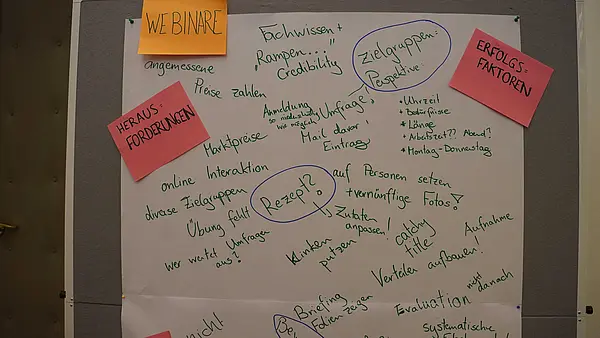 WEBINARE
Fachwissen +
„Rampen..."
Credibility
Zielgruppen-
Perspektive.
ERFOLGS-
FAKTOREN
angemessene
Preise zahlen
HERAUS-
FORDERUNGEN
Anmeldung
so niederschwellig
wie möglich
Umfrage,
Mail davor!
Eintrag
• Uhrzeit
• Bedürfnisse
• Länge
• Arbeitszeit?? Abend?
• Montag-Donnerstag
Marktpreise
online Interaktion
diverse Zielgruppen
Übung fehlt
wer wertet Umfragen
aus?
Rezept?
Zutaten
anpassen!
auf Personen setzen
+ vernünftige Fotos!
Klinken
putzen
catchy
title
Aufnahme
Verteiler aufbauen!
Briefing
Folien zeigen
Evaluation
nicht
danach
systematische
nicht